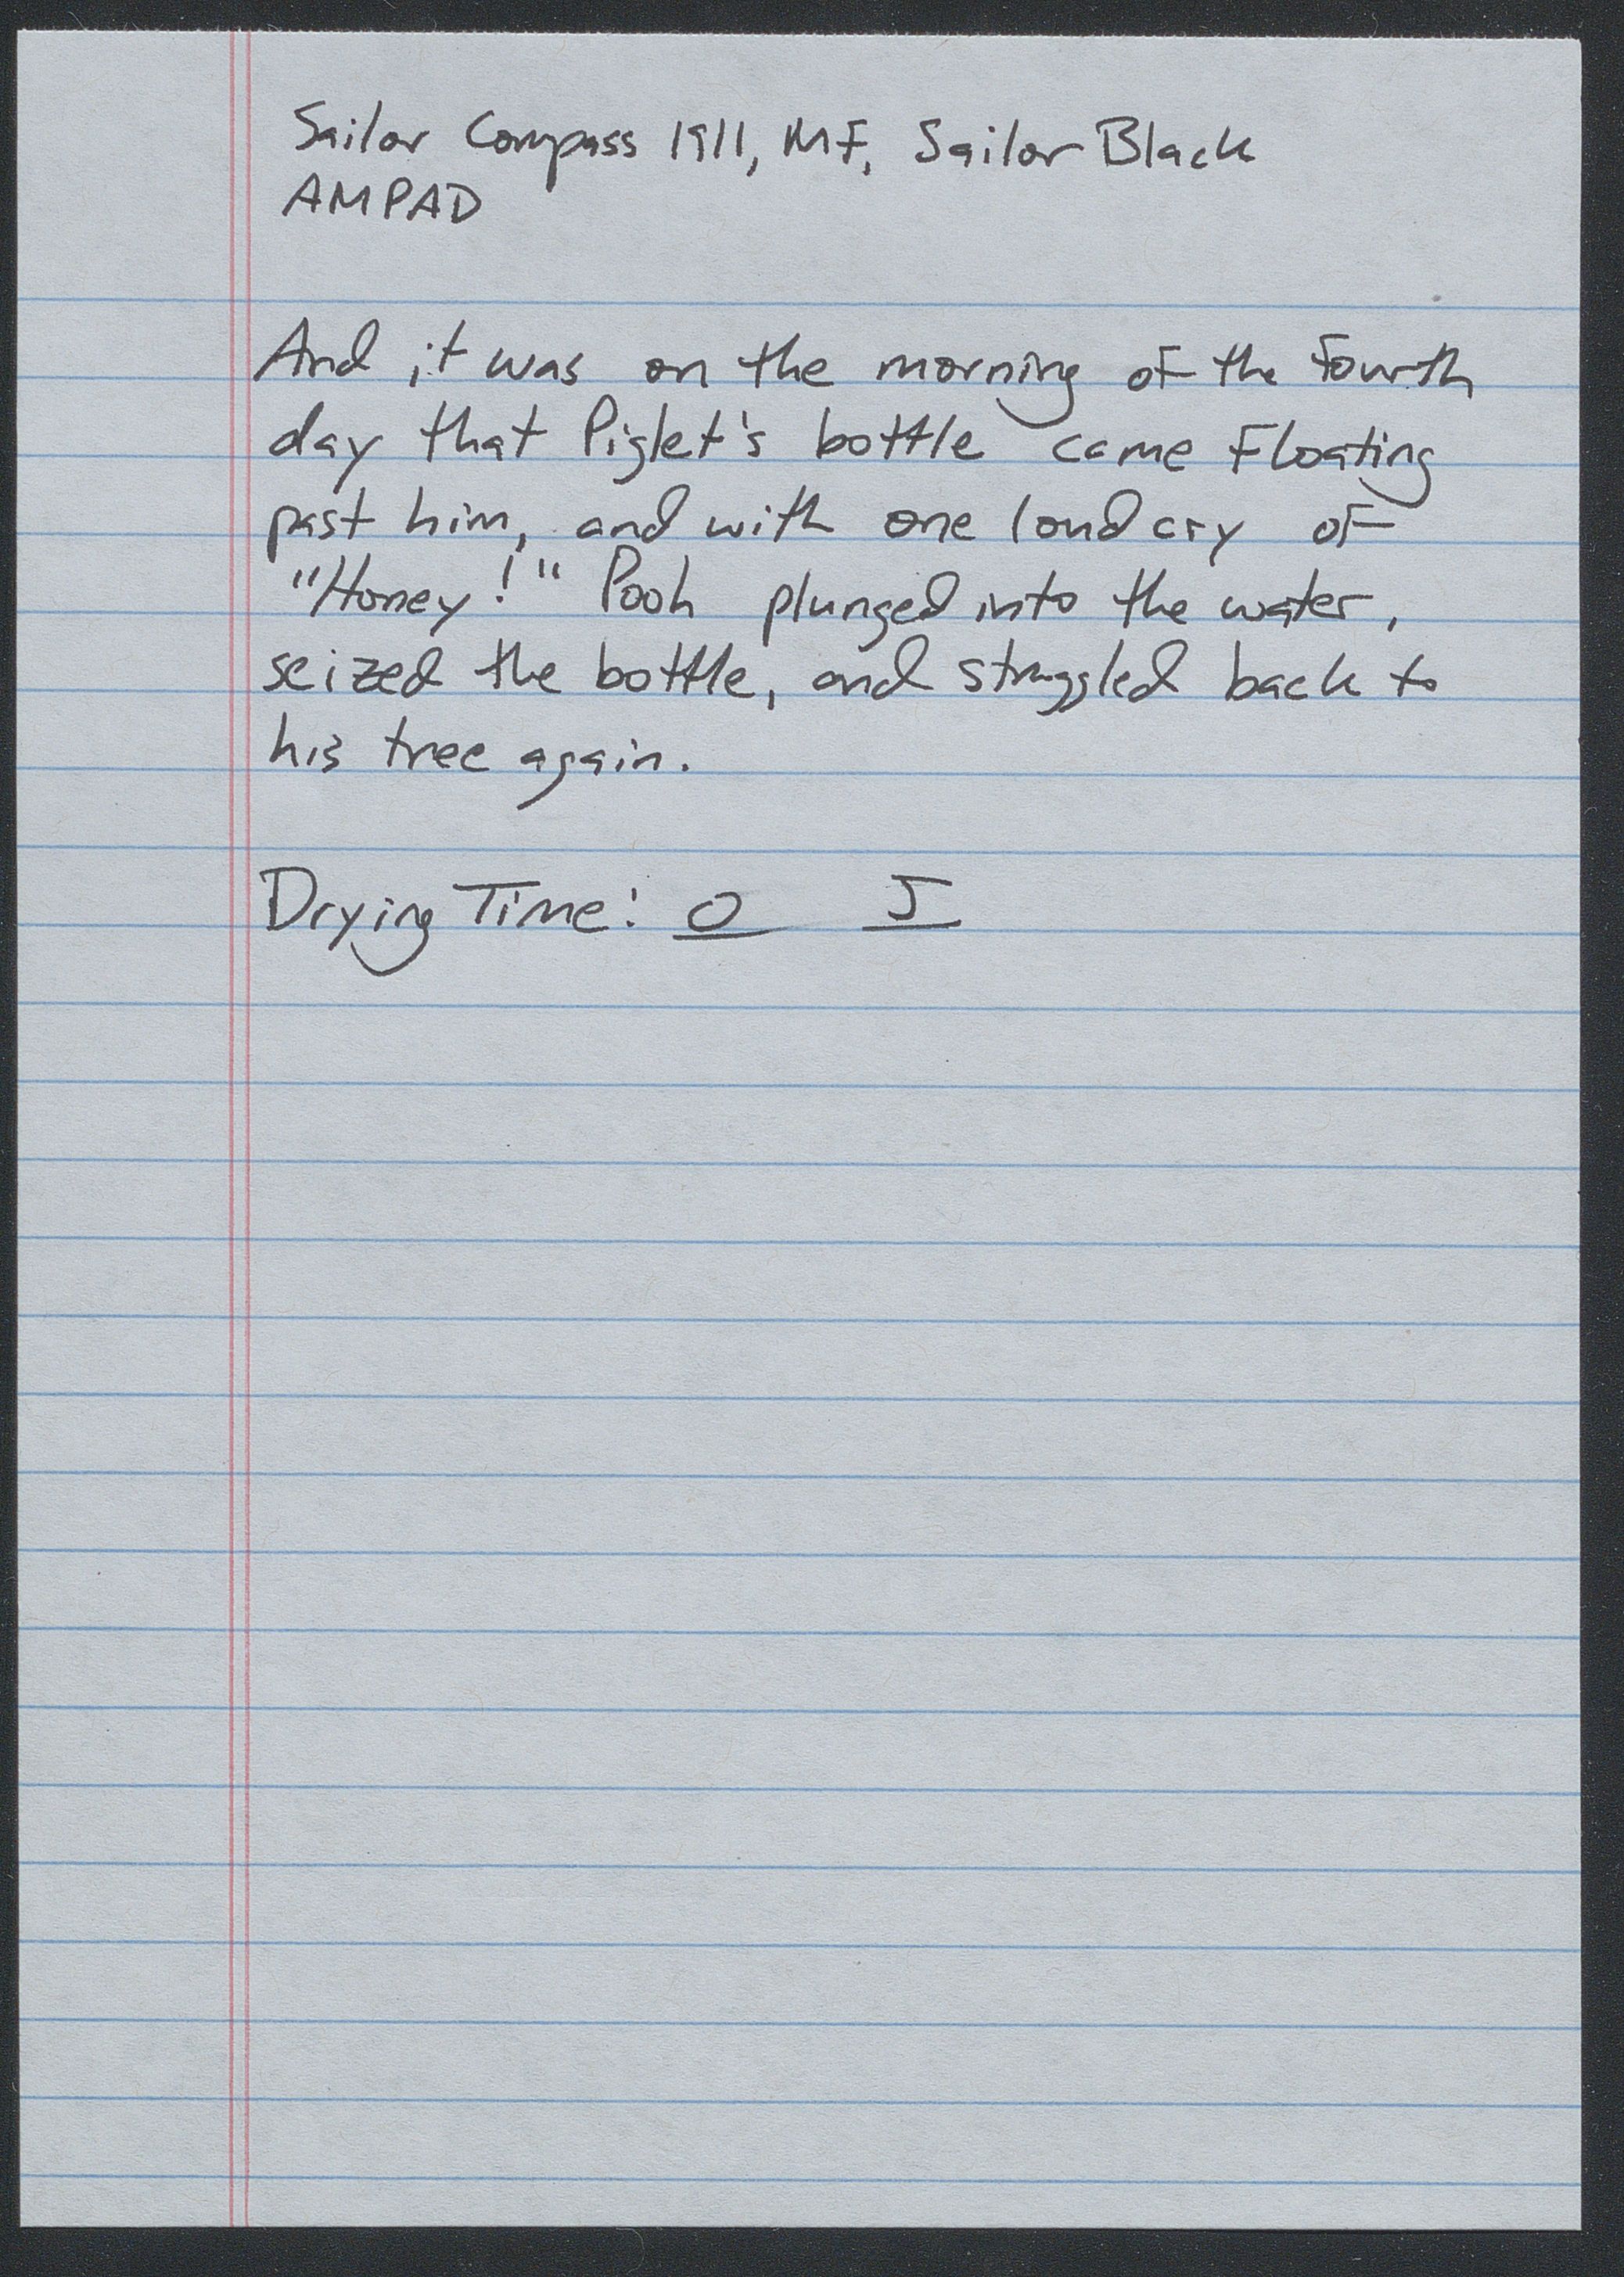 Sailor Compass 1911, MF, Sailor Black
AMPAD
And it was on the morning of the fourth
day that Piglet's bottle came floating
past him, and with one loud cry of
"Honey!" Pooh plunged into the water,
seized the bottle, and struggled back to
his tree again.
Drying Time: 0 5